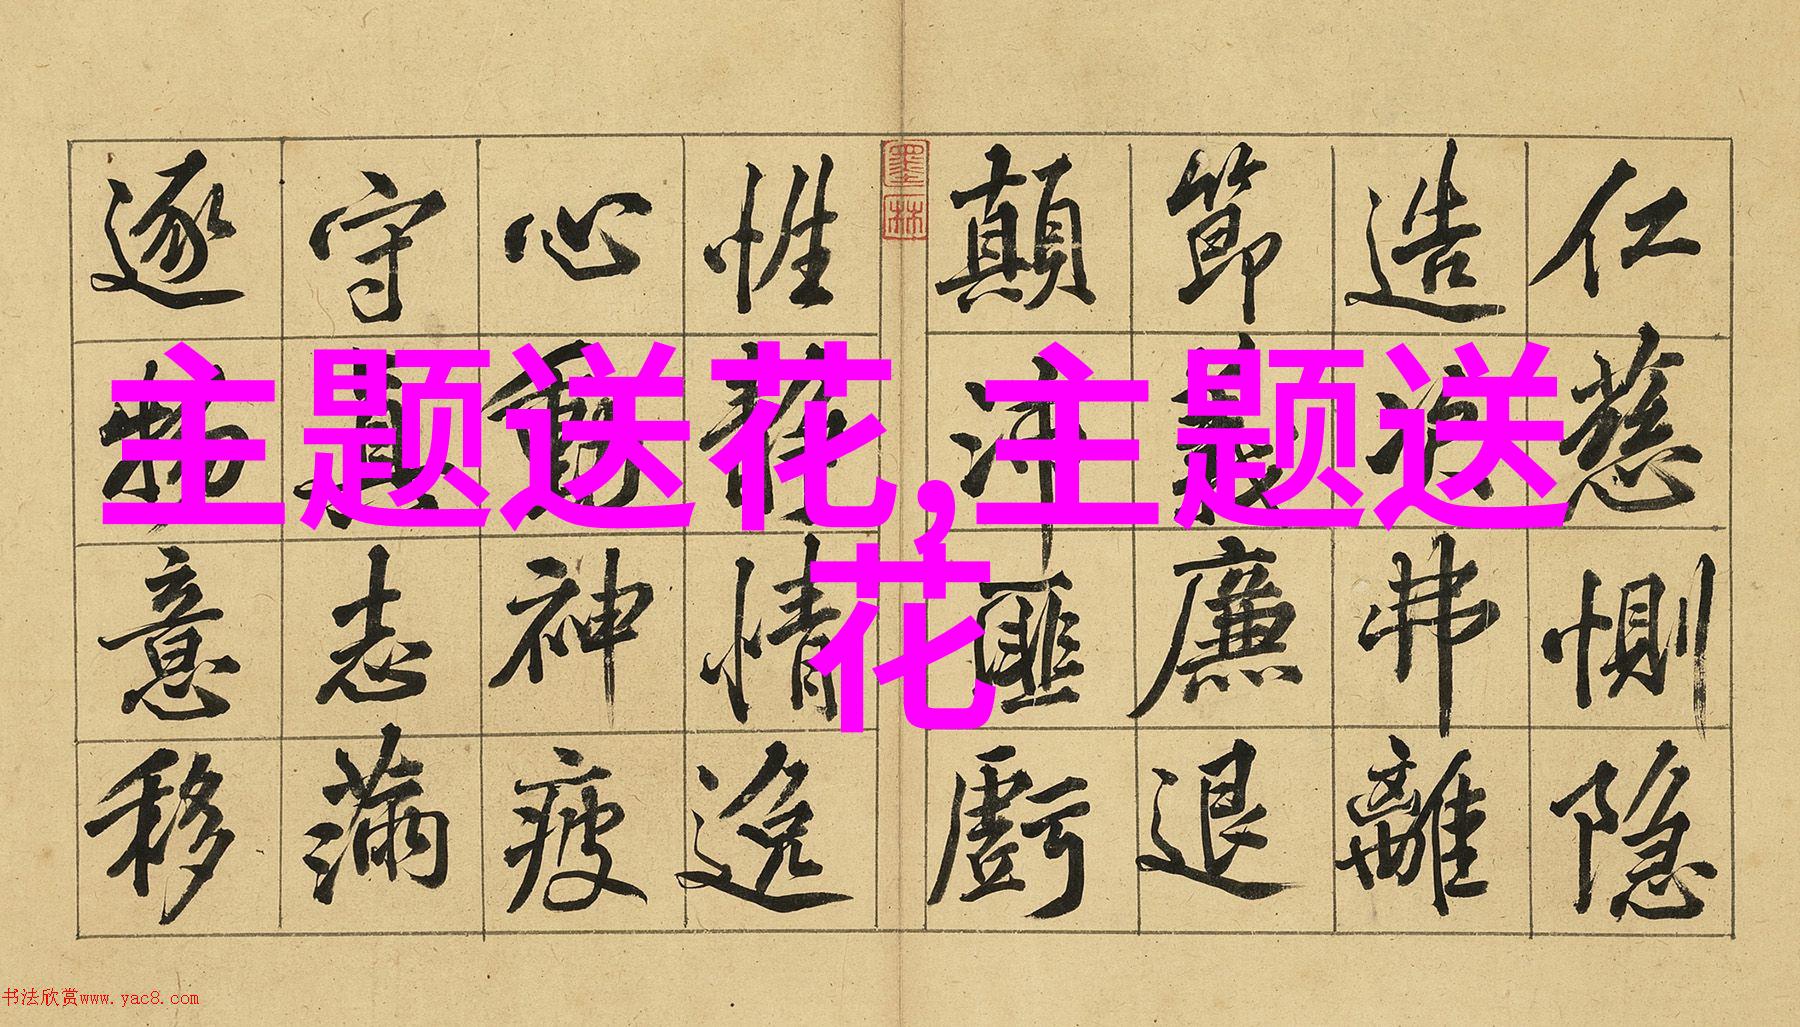 仁慈惻隐
造次弗離
節義廉退
顛沛匪虧
性靜情逸
心動神疲
守真志滿
逐物意移
墨林
主题送花,主题送
花
书法欣赏www.yac8.com